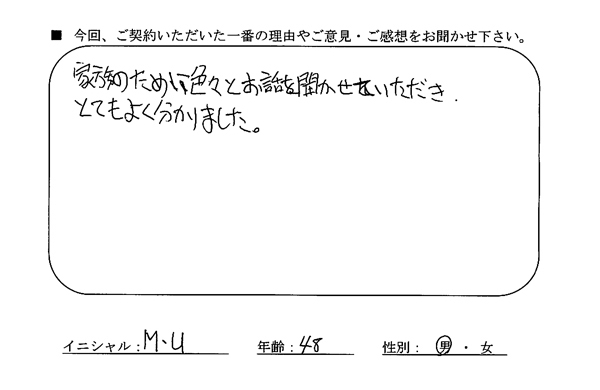 ■ 今回、ご契約いただいた一番の理由やご意見・ご感想をお聞かせ下さい。
家族のために色々とお話を聞かせていただき、
とてもよく分かりました。
イニシャル：M・U 年齢：48 性別： 男 ・ 女